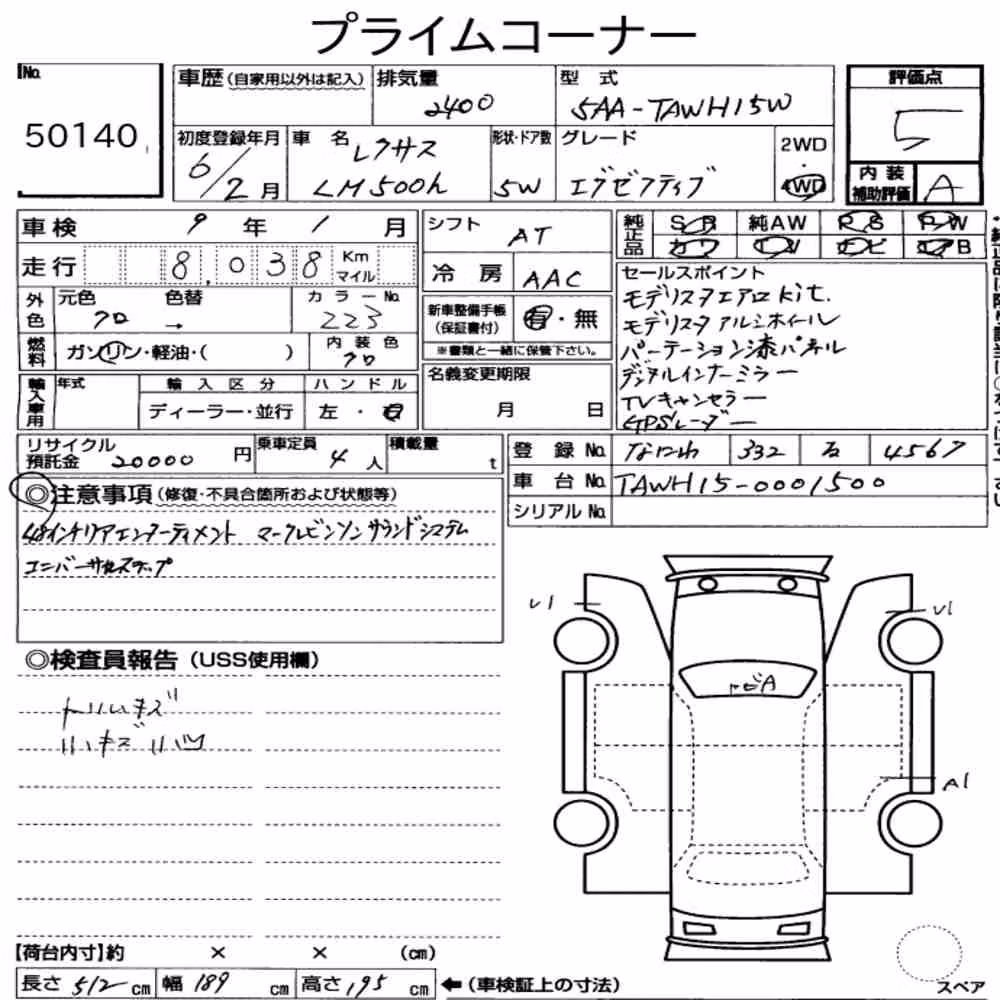 プライムコーナー
No. 50140
車歴(自家用以外は記入)
排気量 2400
型式 5AA-TAWH15W
評価点 5
初度登録年月 6/2月
車名 レクサス LM500h
形状・ドア数 5W
グレード エグゼクティブ
2WD・4WD
内装補助評価 A
車検 9年 1月
シフト AT
純正品 SR 純AW PS PW
カワ TV ナビ エアB
走行 8,038 Km マイル
冷房 AAC
外色 元色 クロ 色替 →
カラーNo. 223
新車整備手帳(保証書付) 有・無
※書類と一緒に保管下さい。
燃料 ガソリン・軽油・( )
内装色 クロ
セールスポイント
モデリスタエアロkit.
モデリスタ アルミホイール
パーテーション漆パネル
デジタルインナーミラー
TVキャンセラー
GPSレーダー
輸入車用 年式 輸入区分 ハンドル
ディーラー・並行 左・右
名義変更期限 月 日
リサイクル預託金 20000円
乗車定員 4人
積載量 t
登録No. なにわ 332 る 4567
車台No. TAWH15-0001500
シリアルNo.
◎注意事項(修復・不具合箇所および状態等)
48インチリアエンターテイメント マークレビンソンサウンドシステム
ユニバーサルステップ
◎検査員報告(USS使用欄)
トリムキズ
ハンキズ ハンシワ
U1 U1
トビA
A1
【荷台内寸】約 × × (cm)
長さ 512 cm 幅 189 cm 高さ 195 cm ←(車検証上の寸法)
スペア